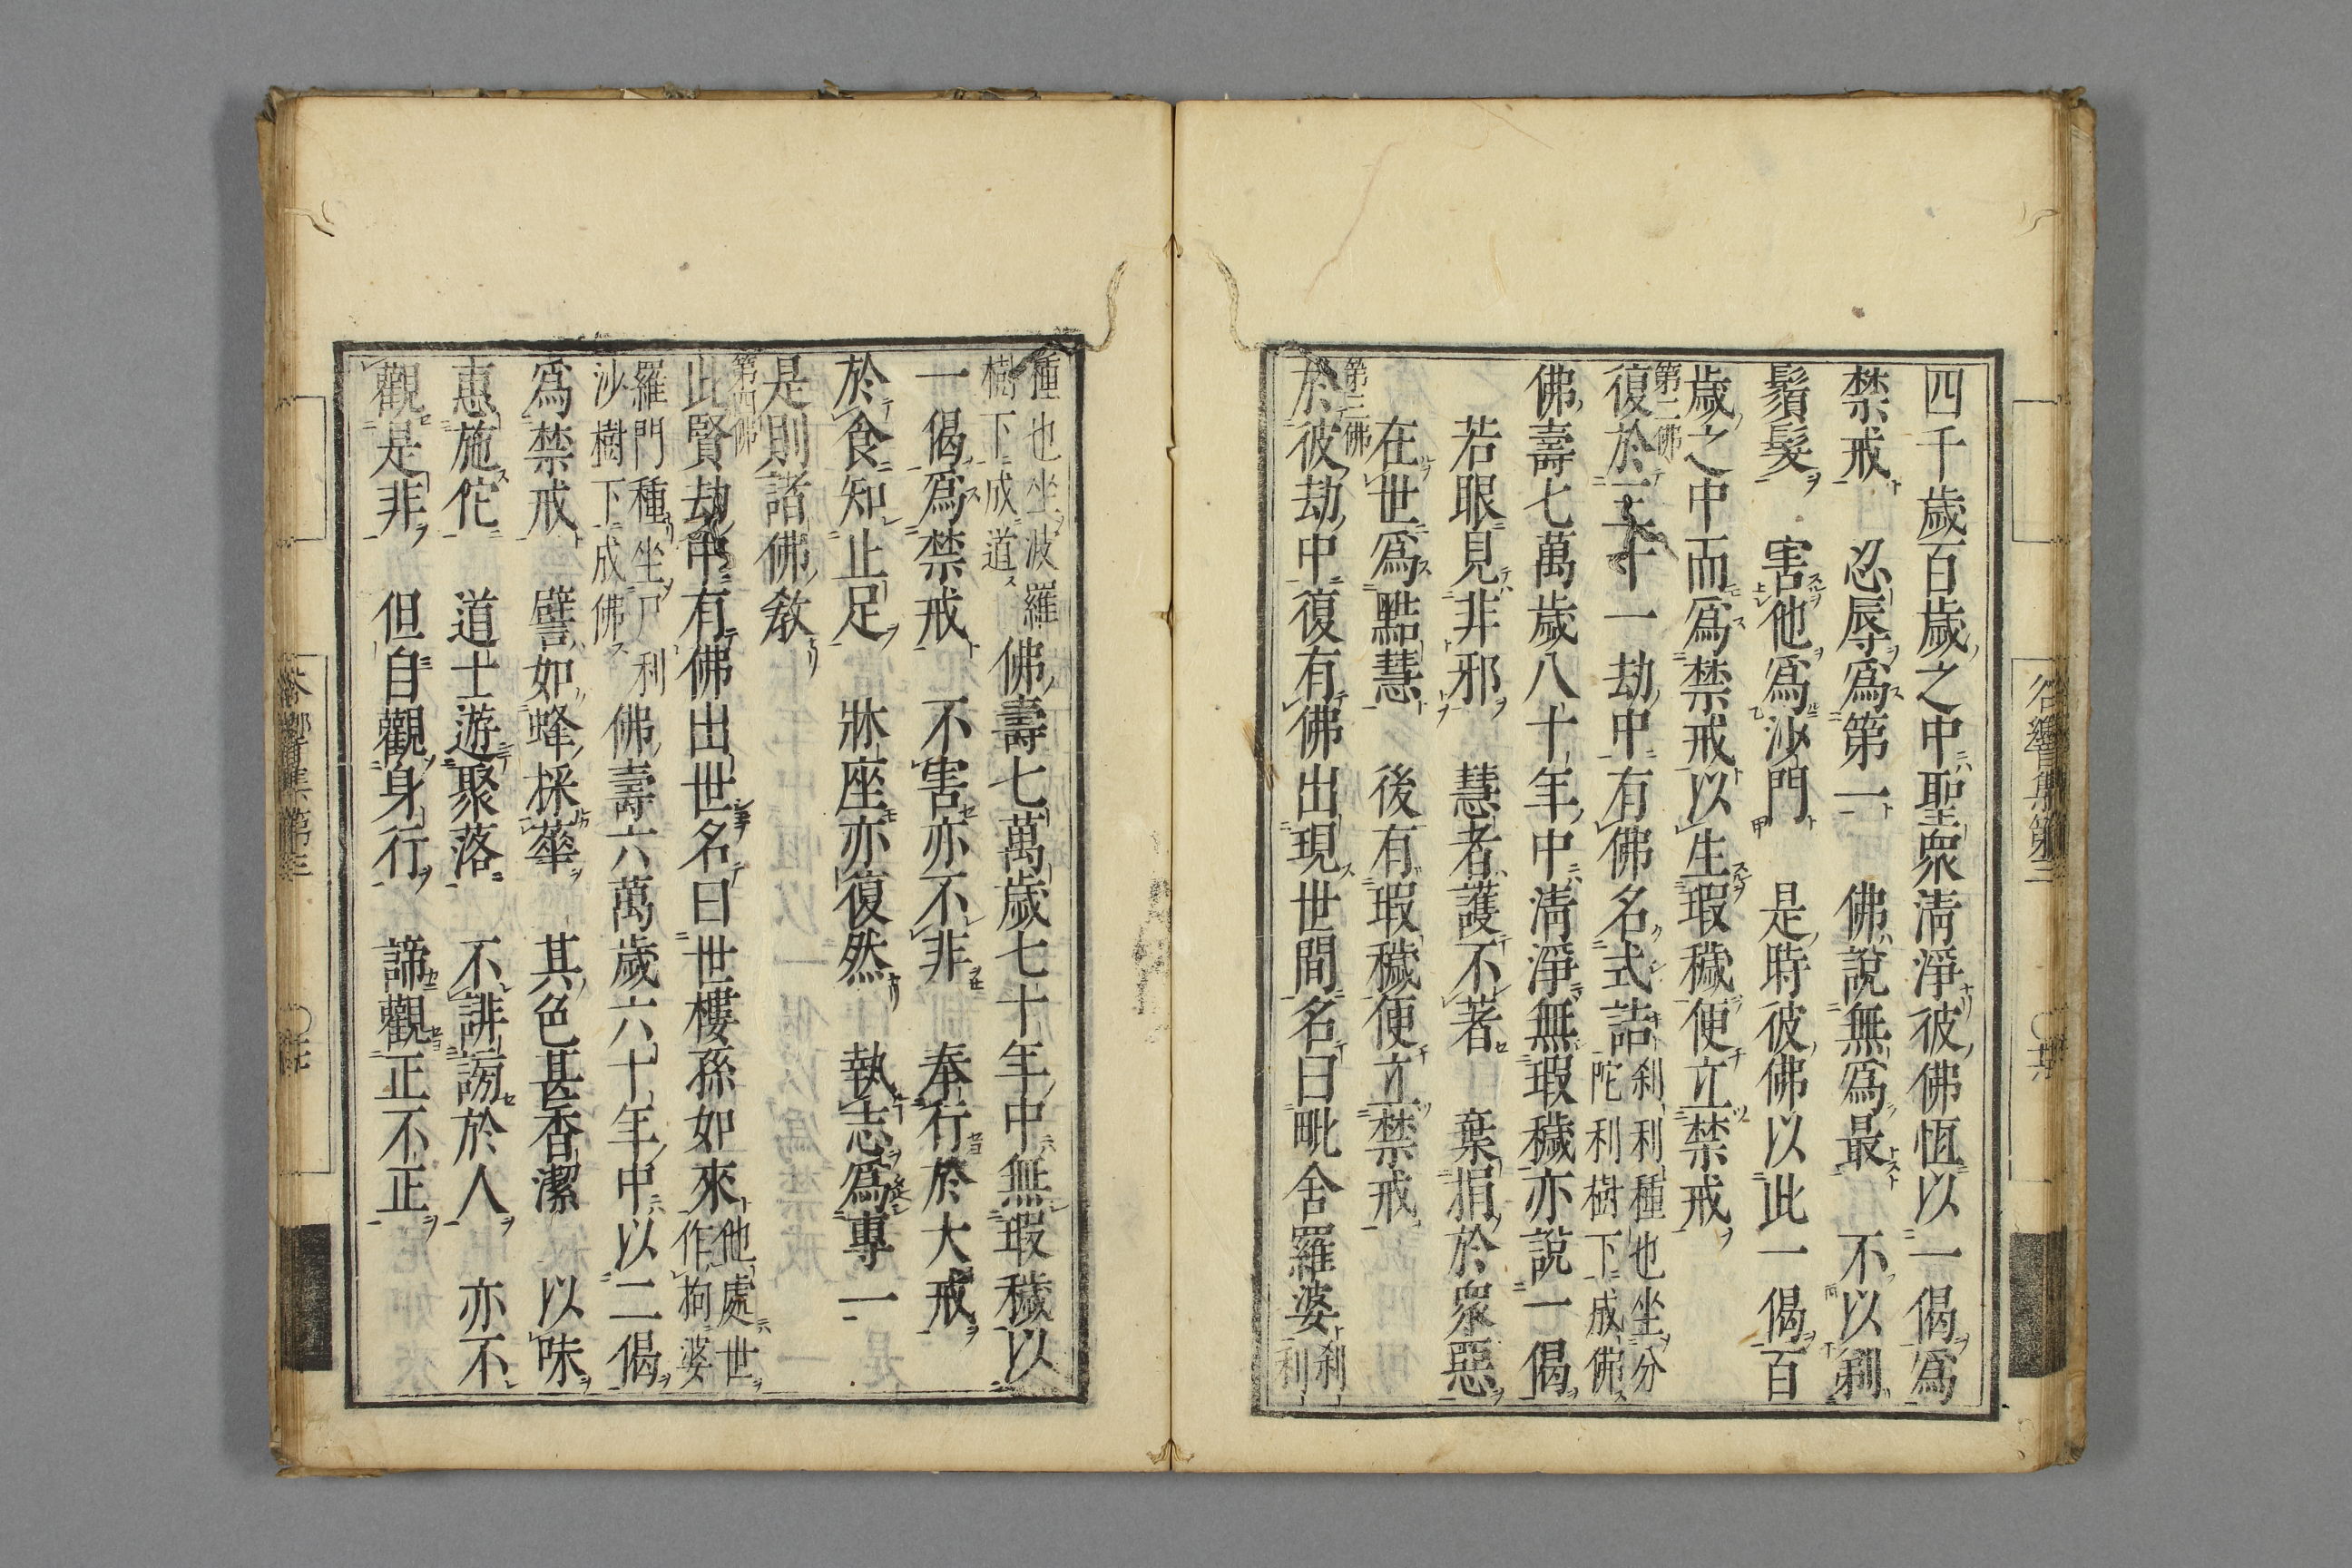 四千歲百歲之中聖衆淸淨彼佛恆以一偈爲
禁戒 忍辱爲第一 佛說無爲最 不以剃
鬚髮 害他爲沙門 是時彼佛以此一偈百
歲之中而爲禁戒以生瑕穢便立禁戒
第二佛
復於三十一劫中有佛名式詰
刹利種也坐分
陀利樹下成佛
佛壽七萬歲八十年中淸淨無瑕穢亦說一偈
若眼見非邪 慧者護不著 棄捐於衆惡
在世爲黠慧 後有瑕穢便立禁戒
第三佛
於彼劫中復有佛出現世間名曰毗舍羅婆
刹
利
種也坐波羅
樹下成道
佛壽七萬歲七十年中無瑕穢以
一偈爲禁戒 不害亦不非 奉行於大戒
於食知止足 牀座亦復然 執志爲專一
是則諸佛敎
第四佛
此賢劫中有佛出世名曰世樓孫如來
他處世
作拘婆
羅門種坐尸利
沙樹下成佛
佛壽六萬歲六十年中以二偈
爲禁戒 譬如蜂採華 其色甚香潔 以味
惠施佗 道士遊聚落 不誹謗於人 亦不
觀是非 但自觀身行 諦觀正不正
谷響集第三